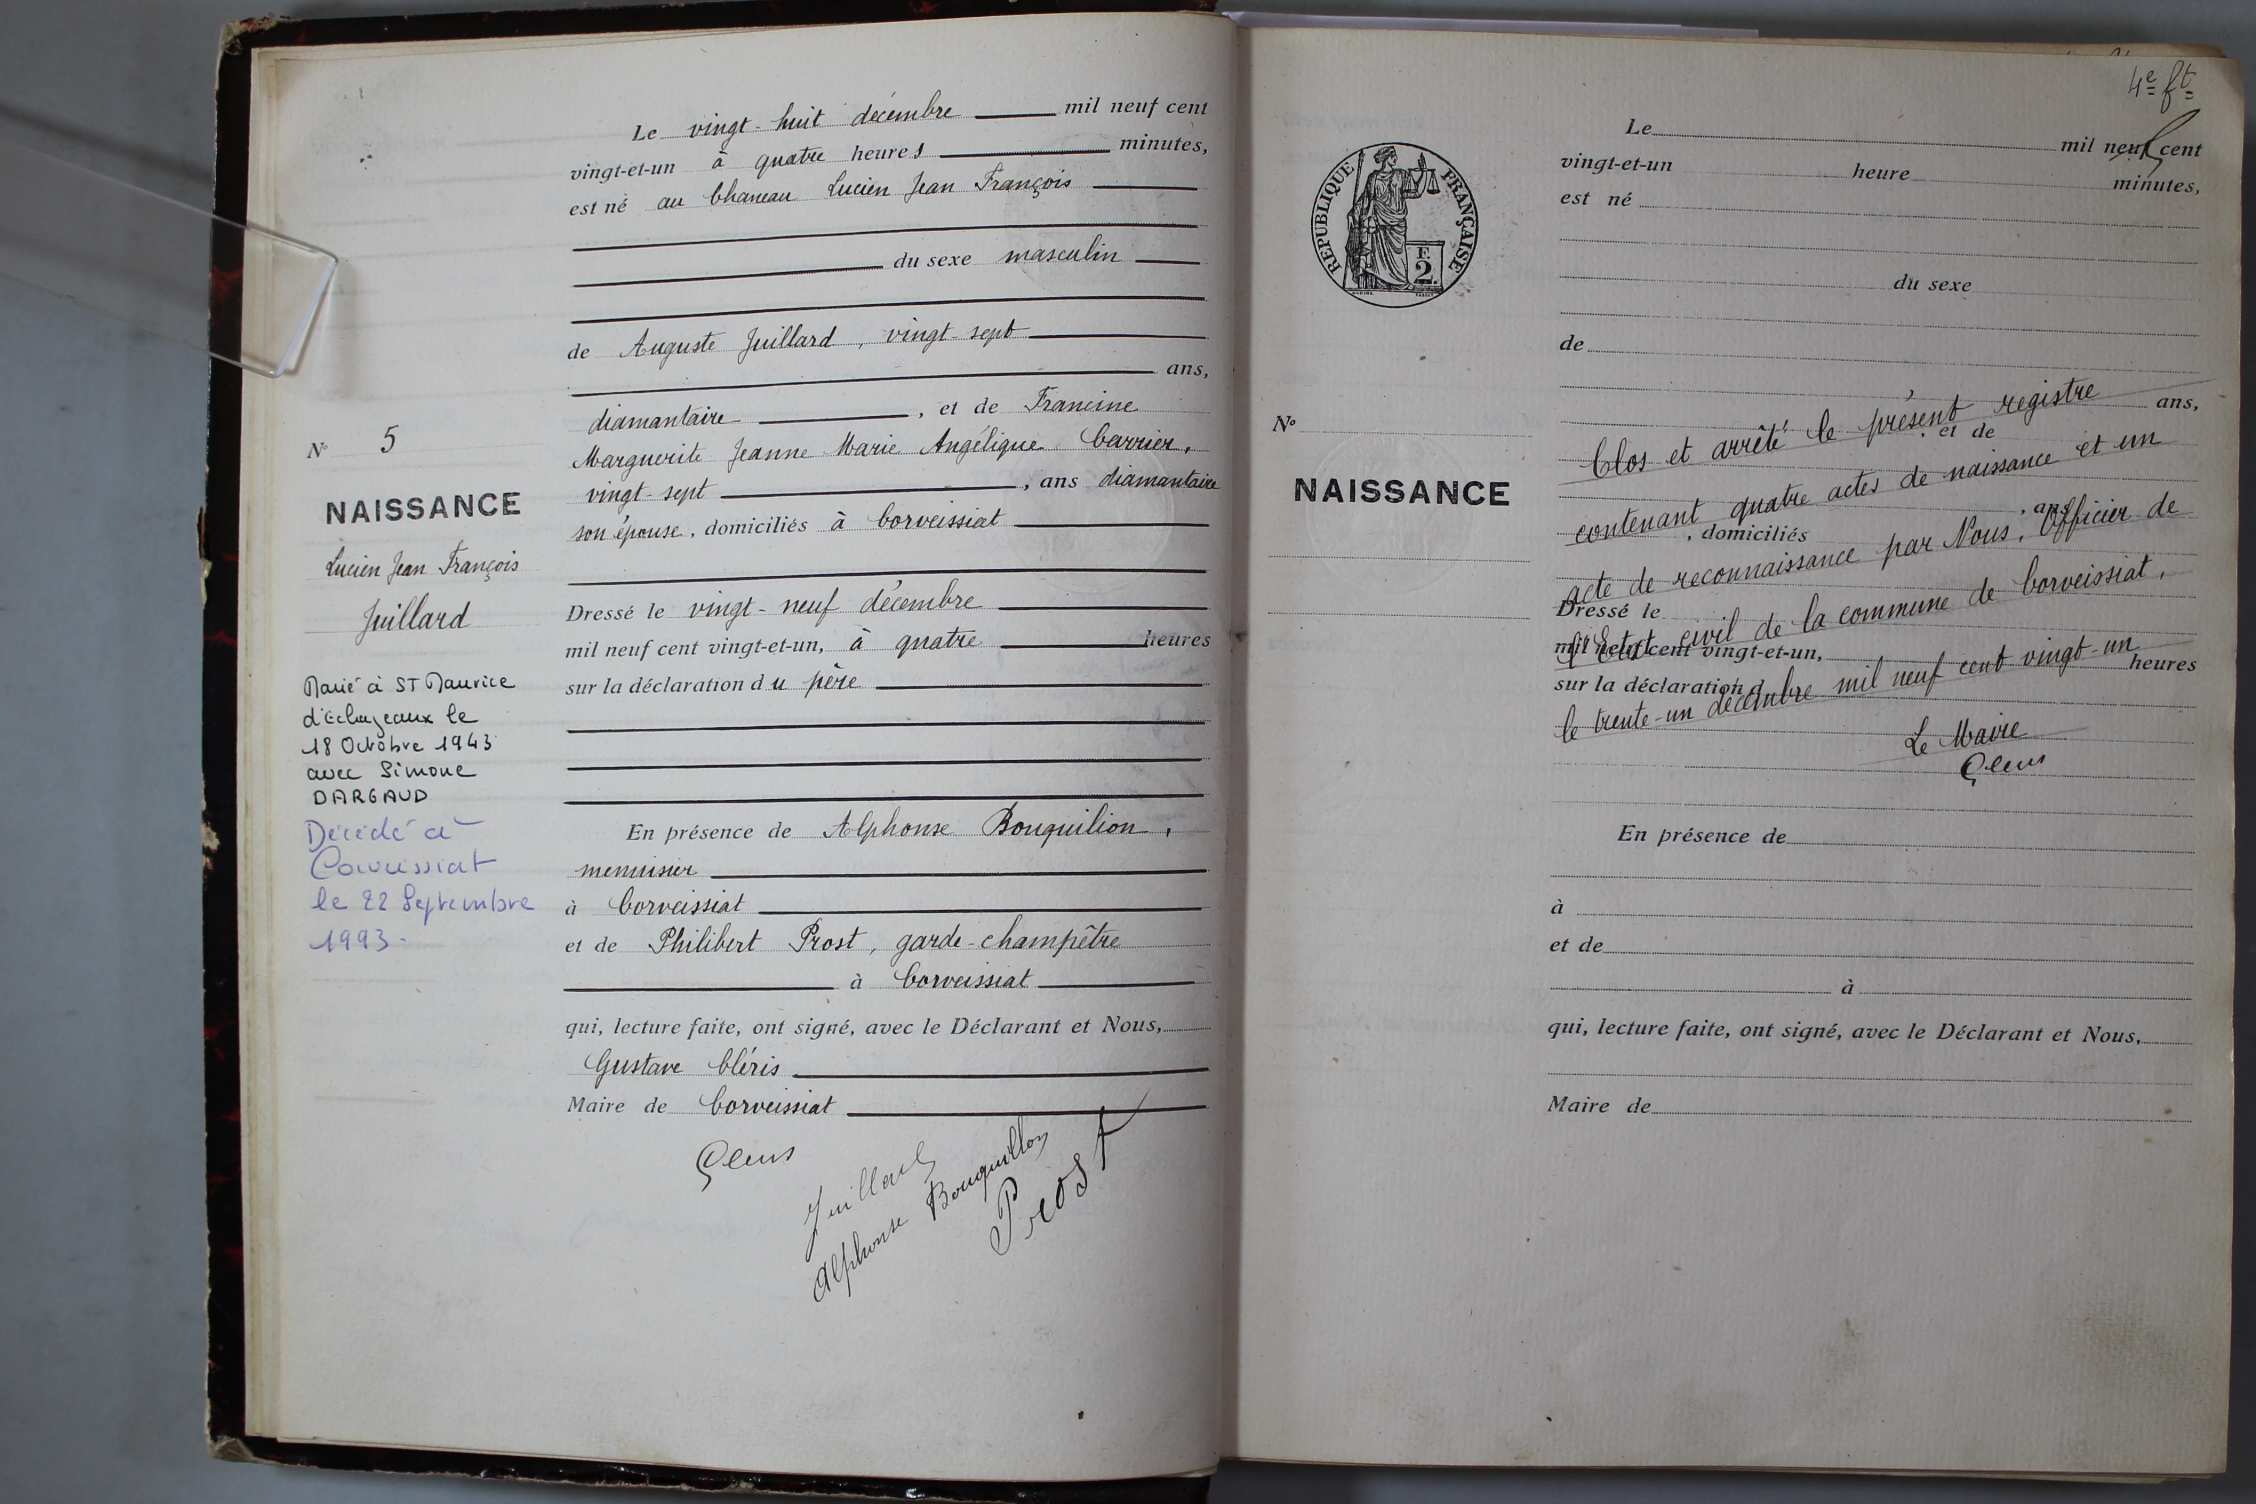 Le vingt-huit décembre mil neuf cent
vingt-et-un à quatre heures minutes,
est né au Chaneau Lucien Jean François
du sexe masculin
de Auguste Juillard, vingt-sept
ans,
diamantaire, et de Francine
Marguerite Jeanne Marie Angélique Carrier,
vingt-sept, ans diamantaire
son épouse, domiciliés à Corveissiat
Dressé le vingt-neuf décembre
mil neuf cent vingt-et-un, à quatre heures
sur la déclaration du père
En présence de Alphonse Bouquilion,
menuisier
à Corveissiat
et de Philibert Prost, garde-champêtre
à Corveissiat
qui, lecture faite, ont signé, avec le Déclarant et Nous,
Gustave Cléris
Maire de Corveissiat
Juillard
Alphonse Bouquillon
Prost
No 5
NAISSANCE
Lucien Jean François
Juillard
Marié à ST Maurice
d'Echazeaux le
18 Octobre 1943
avec Simone
DARGAUD
Décédé à
Corveissiat
le 22 Septembre
1993-
4e ft
REPUBLIQUE FRANÇAISE
F.
2.
No
NAISSANCE
Le mil neuf cent
vingt-et-un heure minutes,
est né
du sexe
de
ans,
, et de
, ans
, domiciliés
Dressé le
mil neuf cent vingt-et-un, heures
sur la déclaration d
Clos et arrêté le présent registre
contenant quatre actes de naissance et un
acte de reconnaissance par Nous, Officier de
l'Etat civil de la commune de Corveissiat,
le trente-un décembre mil neuf cent vingt-un
Le Maire
En présence de
à
et de
à
qui, lecture faite, ont signé, avec le Déclarant et Nous,
Maire de